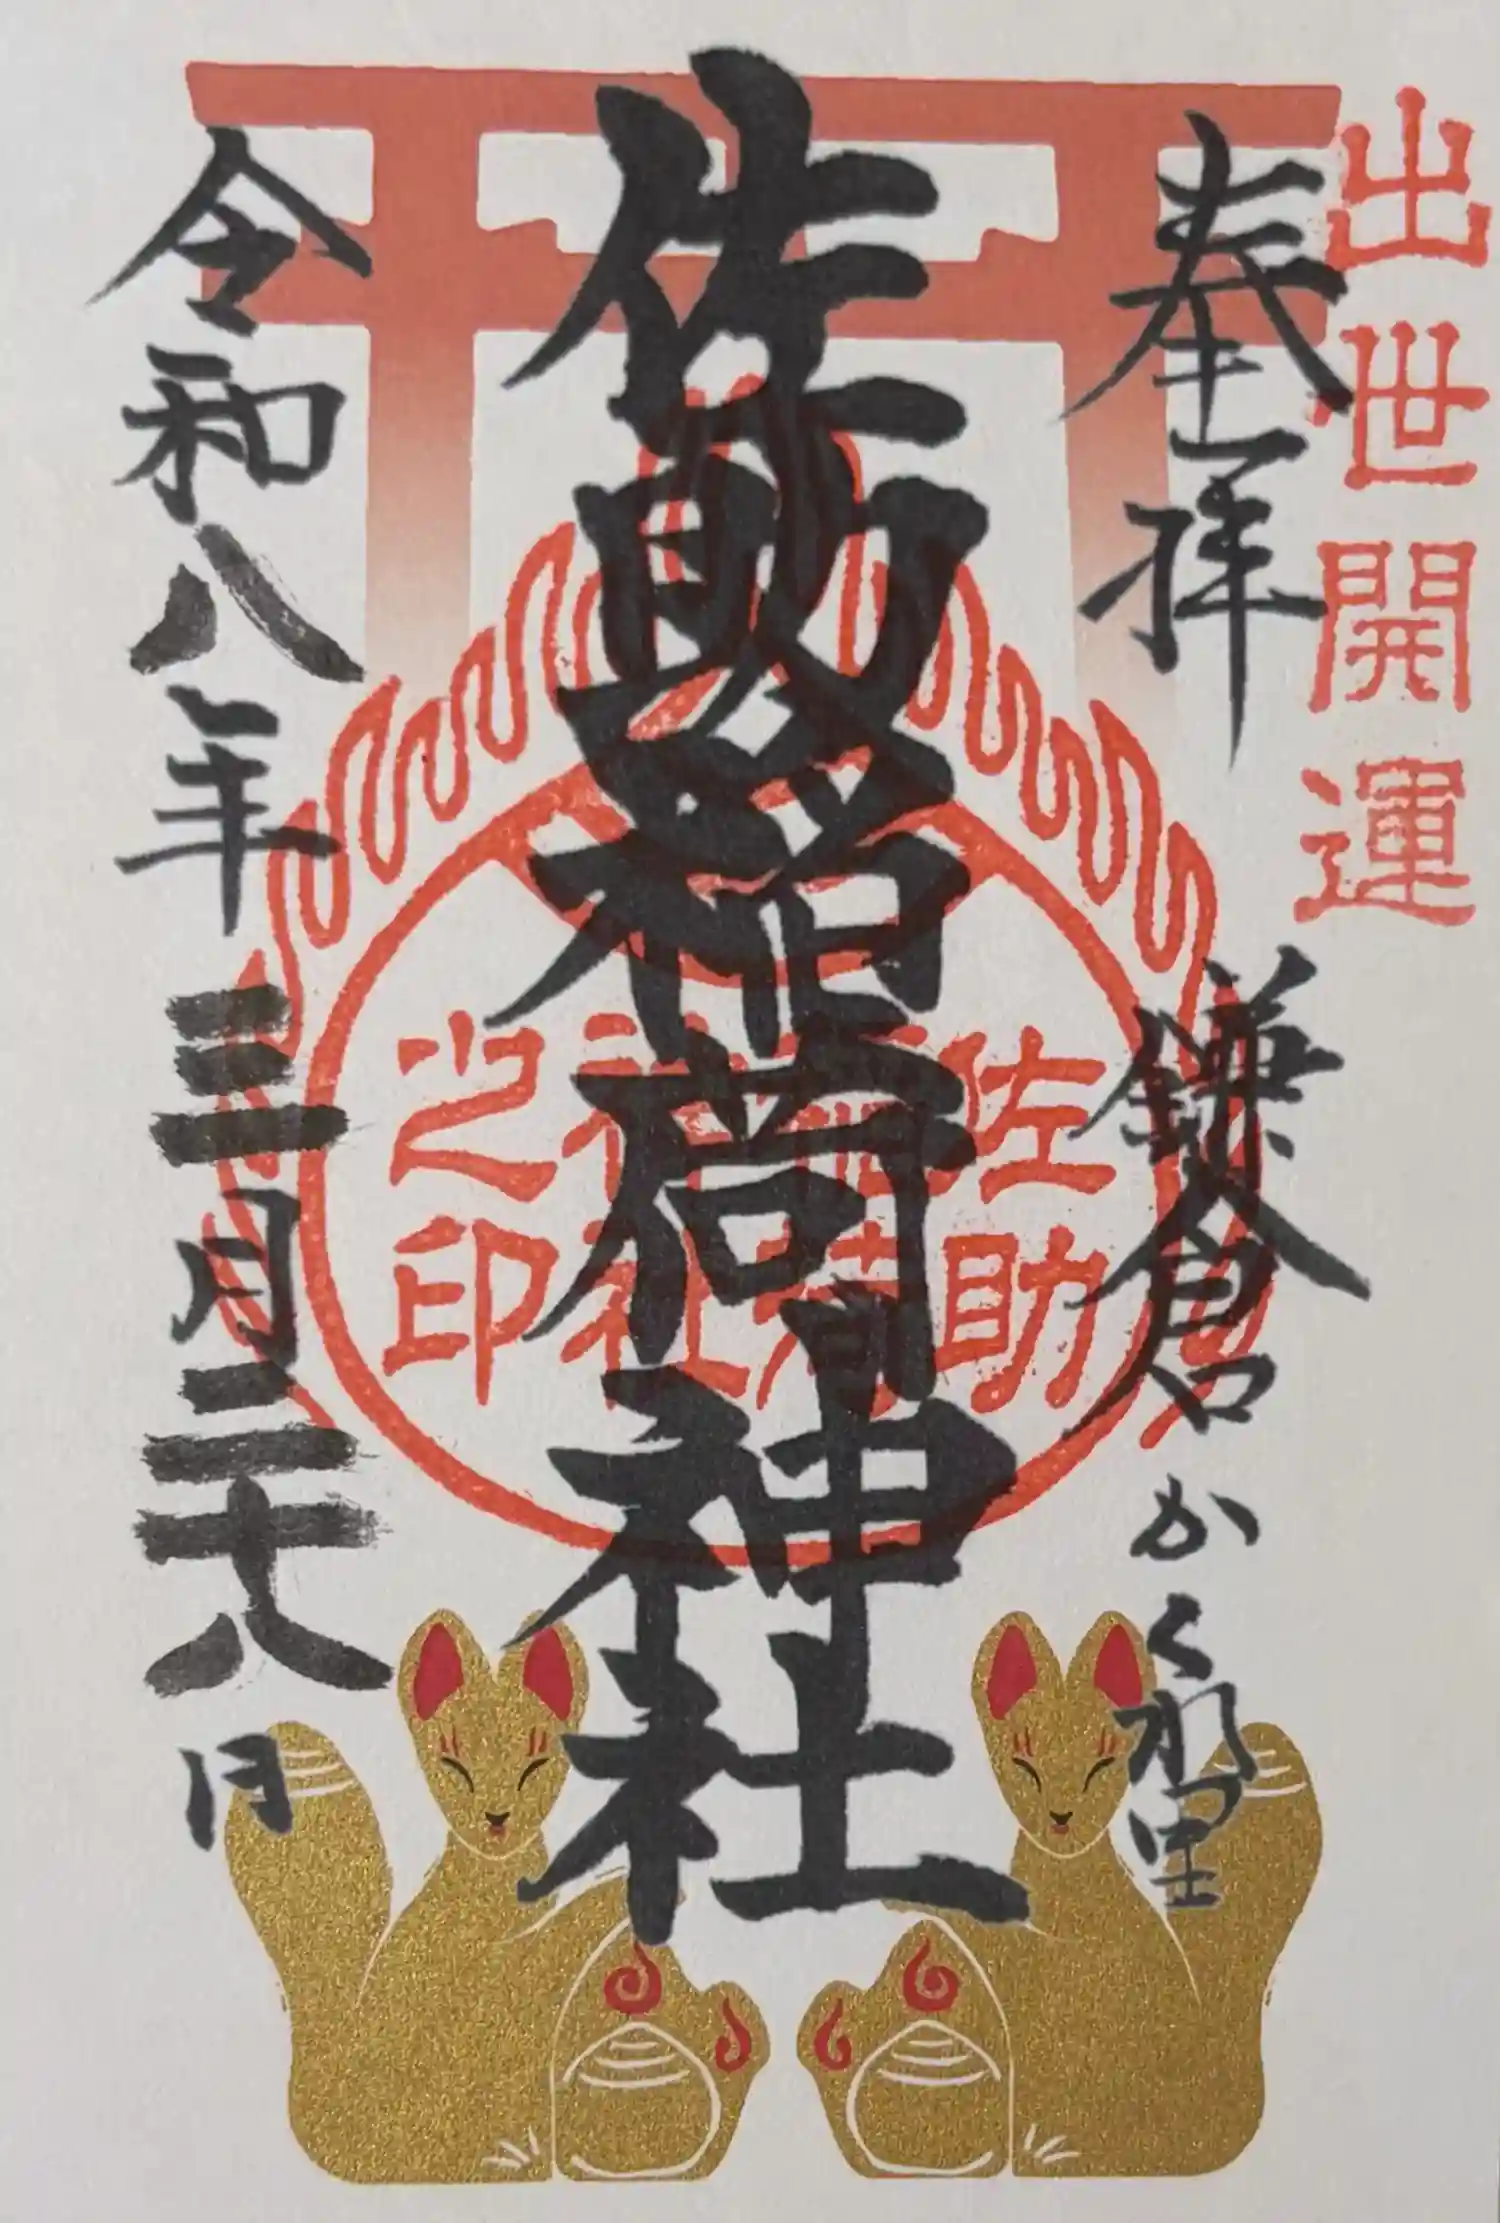 出世開運
奉拝
鎌倉かくれ里
佐助稲荷神社
佐助
稲荷
神社
之印
令和八年三月二十八日